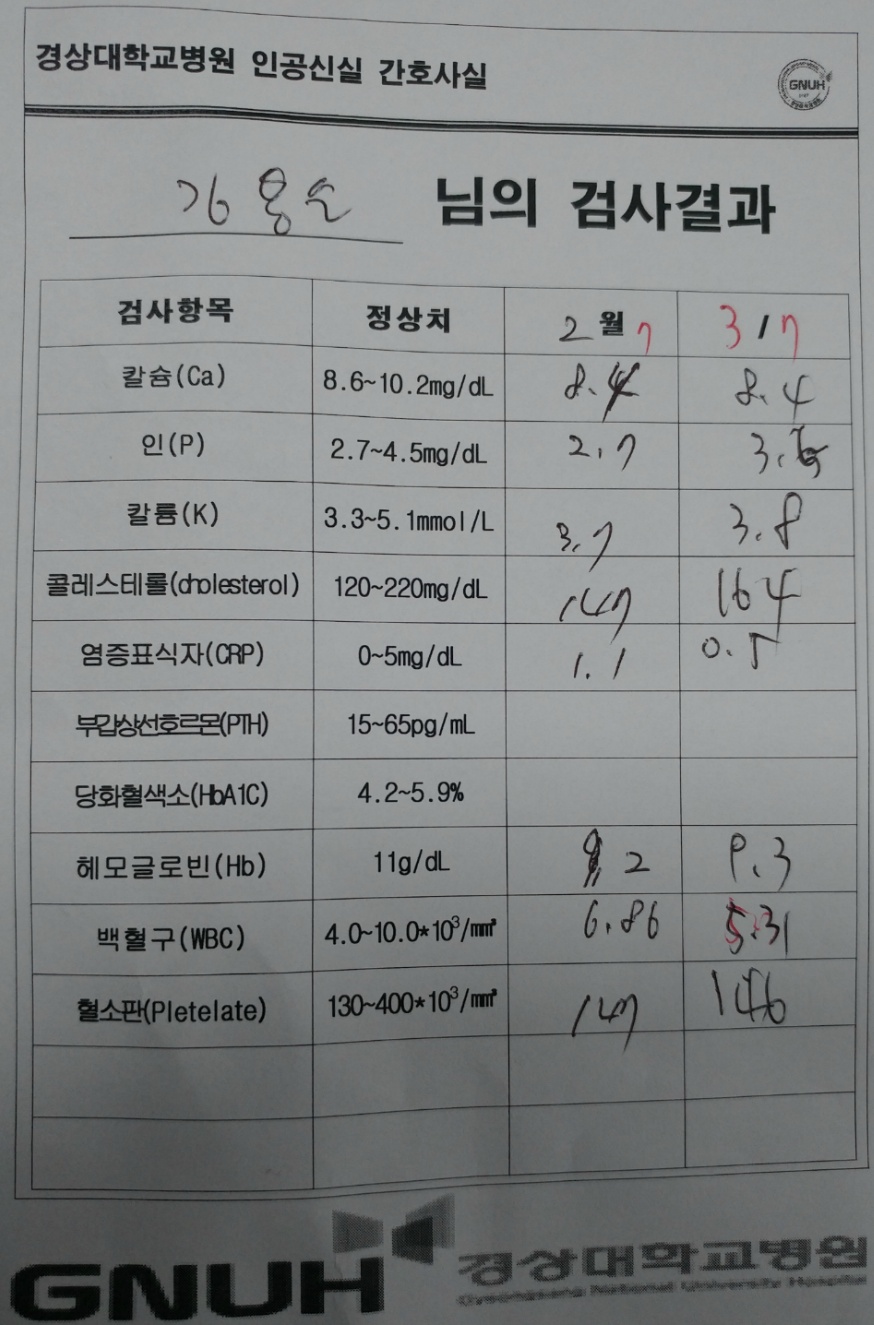 경상대학교병원 인공신실 간호사실
GNUH
님의 검사결과
검사항목 정상치 2월 7 3/7
칼슘(Ca) 8.6~10.2mg/dL 8.4 8.4
인(P) 2.7~4.5mg/dL 2.7 3.
칼륨(K) 3.3~5.1mmol/L 3.7 3.8
콜레스테롤(cholesterol) 120~220mg/dL 147 164
염증표식자(CRP) 0~5mg/dL 1.1 0.5
부갑상선호르몬(PTH) 15~65pg/mL
당화혈색소(HbA1C) 4.2~5.9%
헤모글로빈(Hb) 11g/dL 9.2 9.3
백혈구(WBC) 4.0~10.0*10³/㎣ 6.86 5.31
혈소판(Pletelate) 130~400*10³/㎣ 147 146
GNUH 경상대학교병원
Gyeongsang National University Hospital